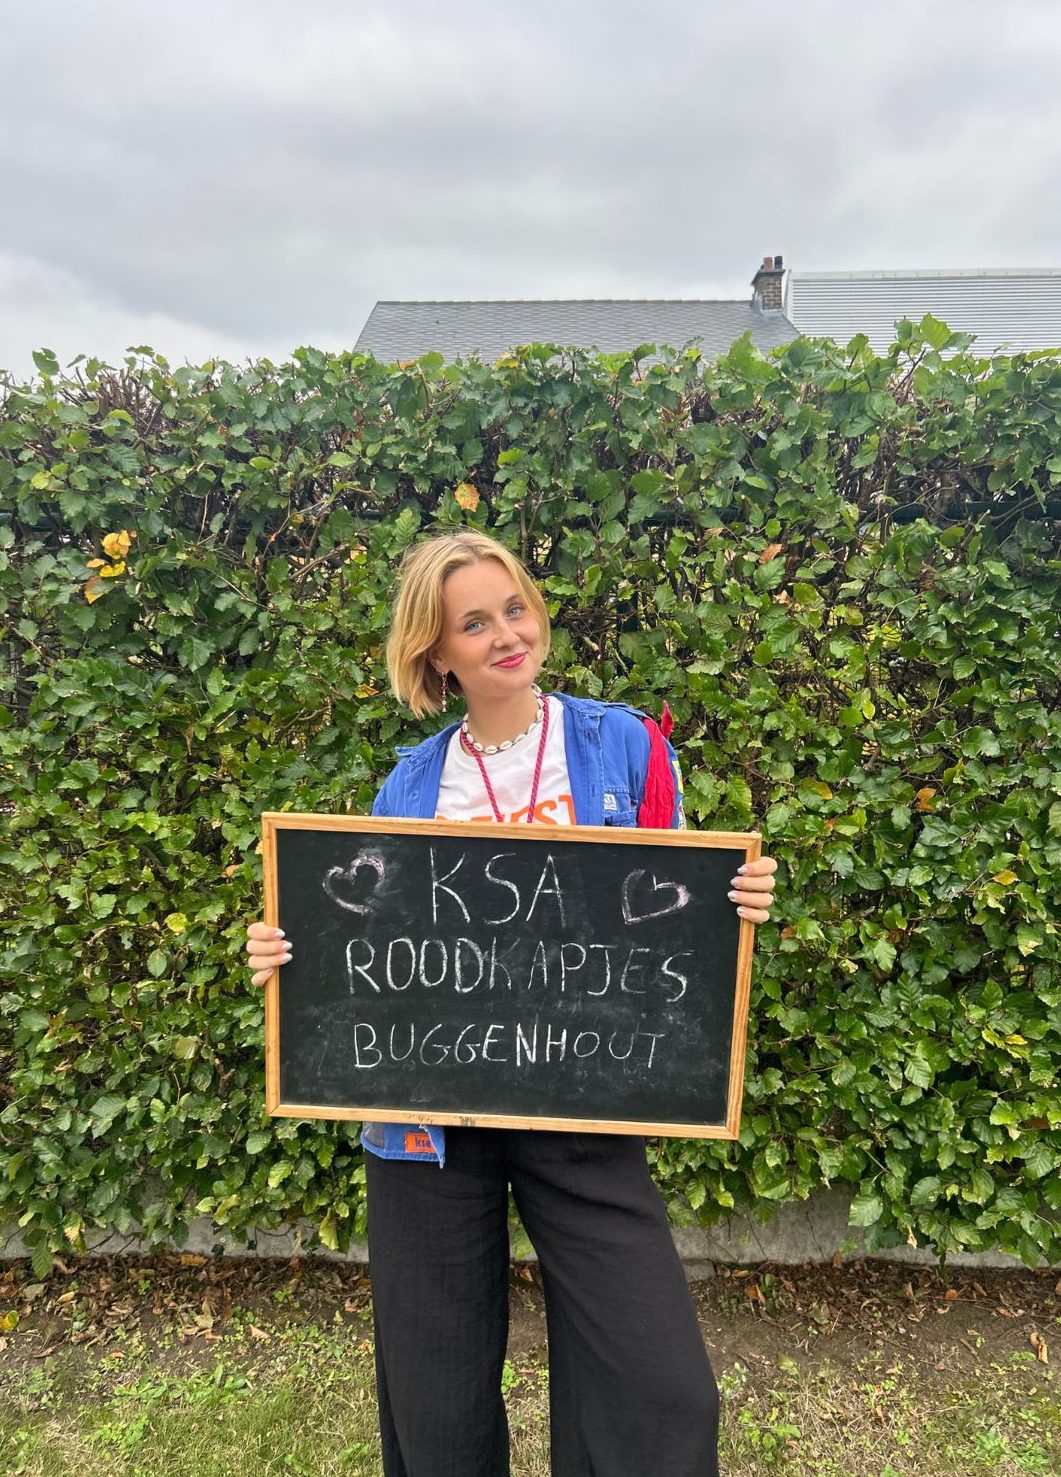 KSA
ROODKAPJES
BUGGENHOUT
ksa